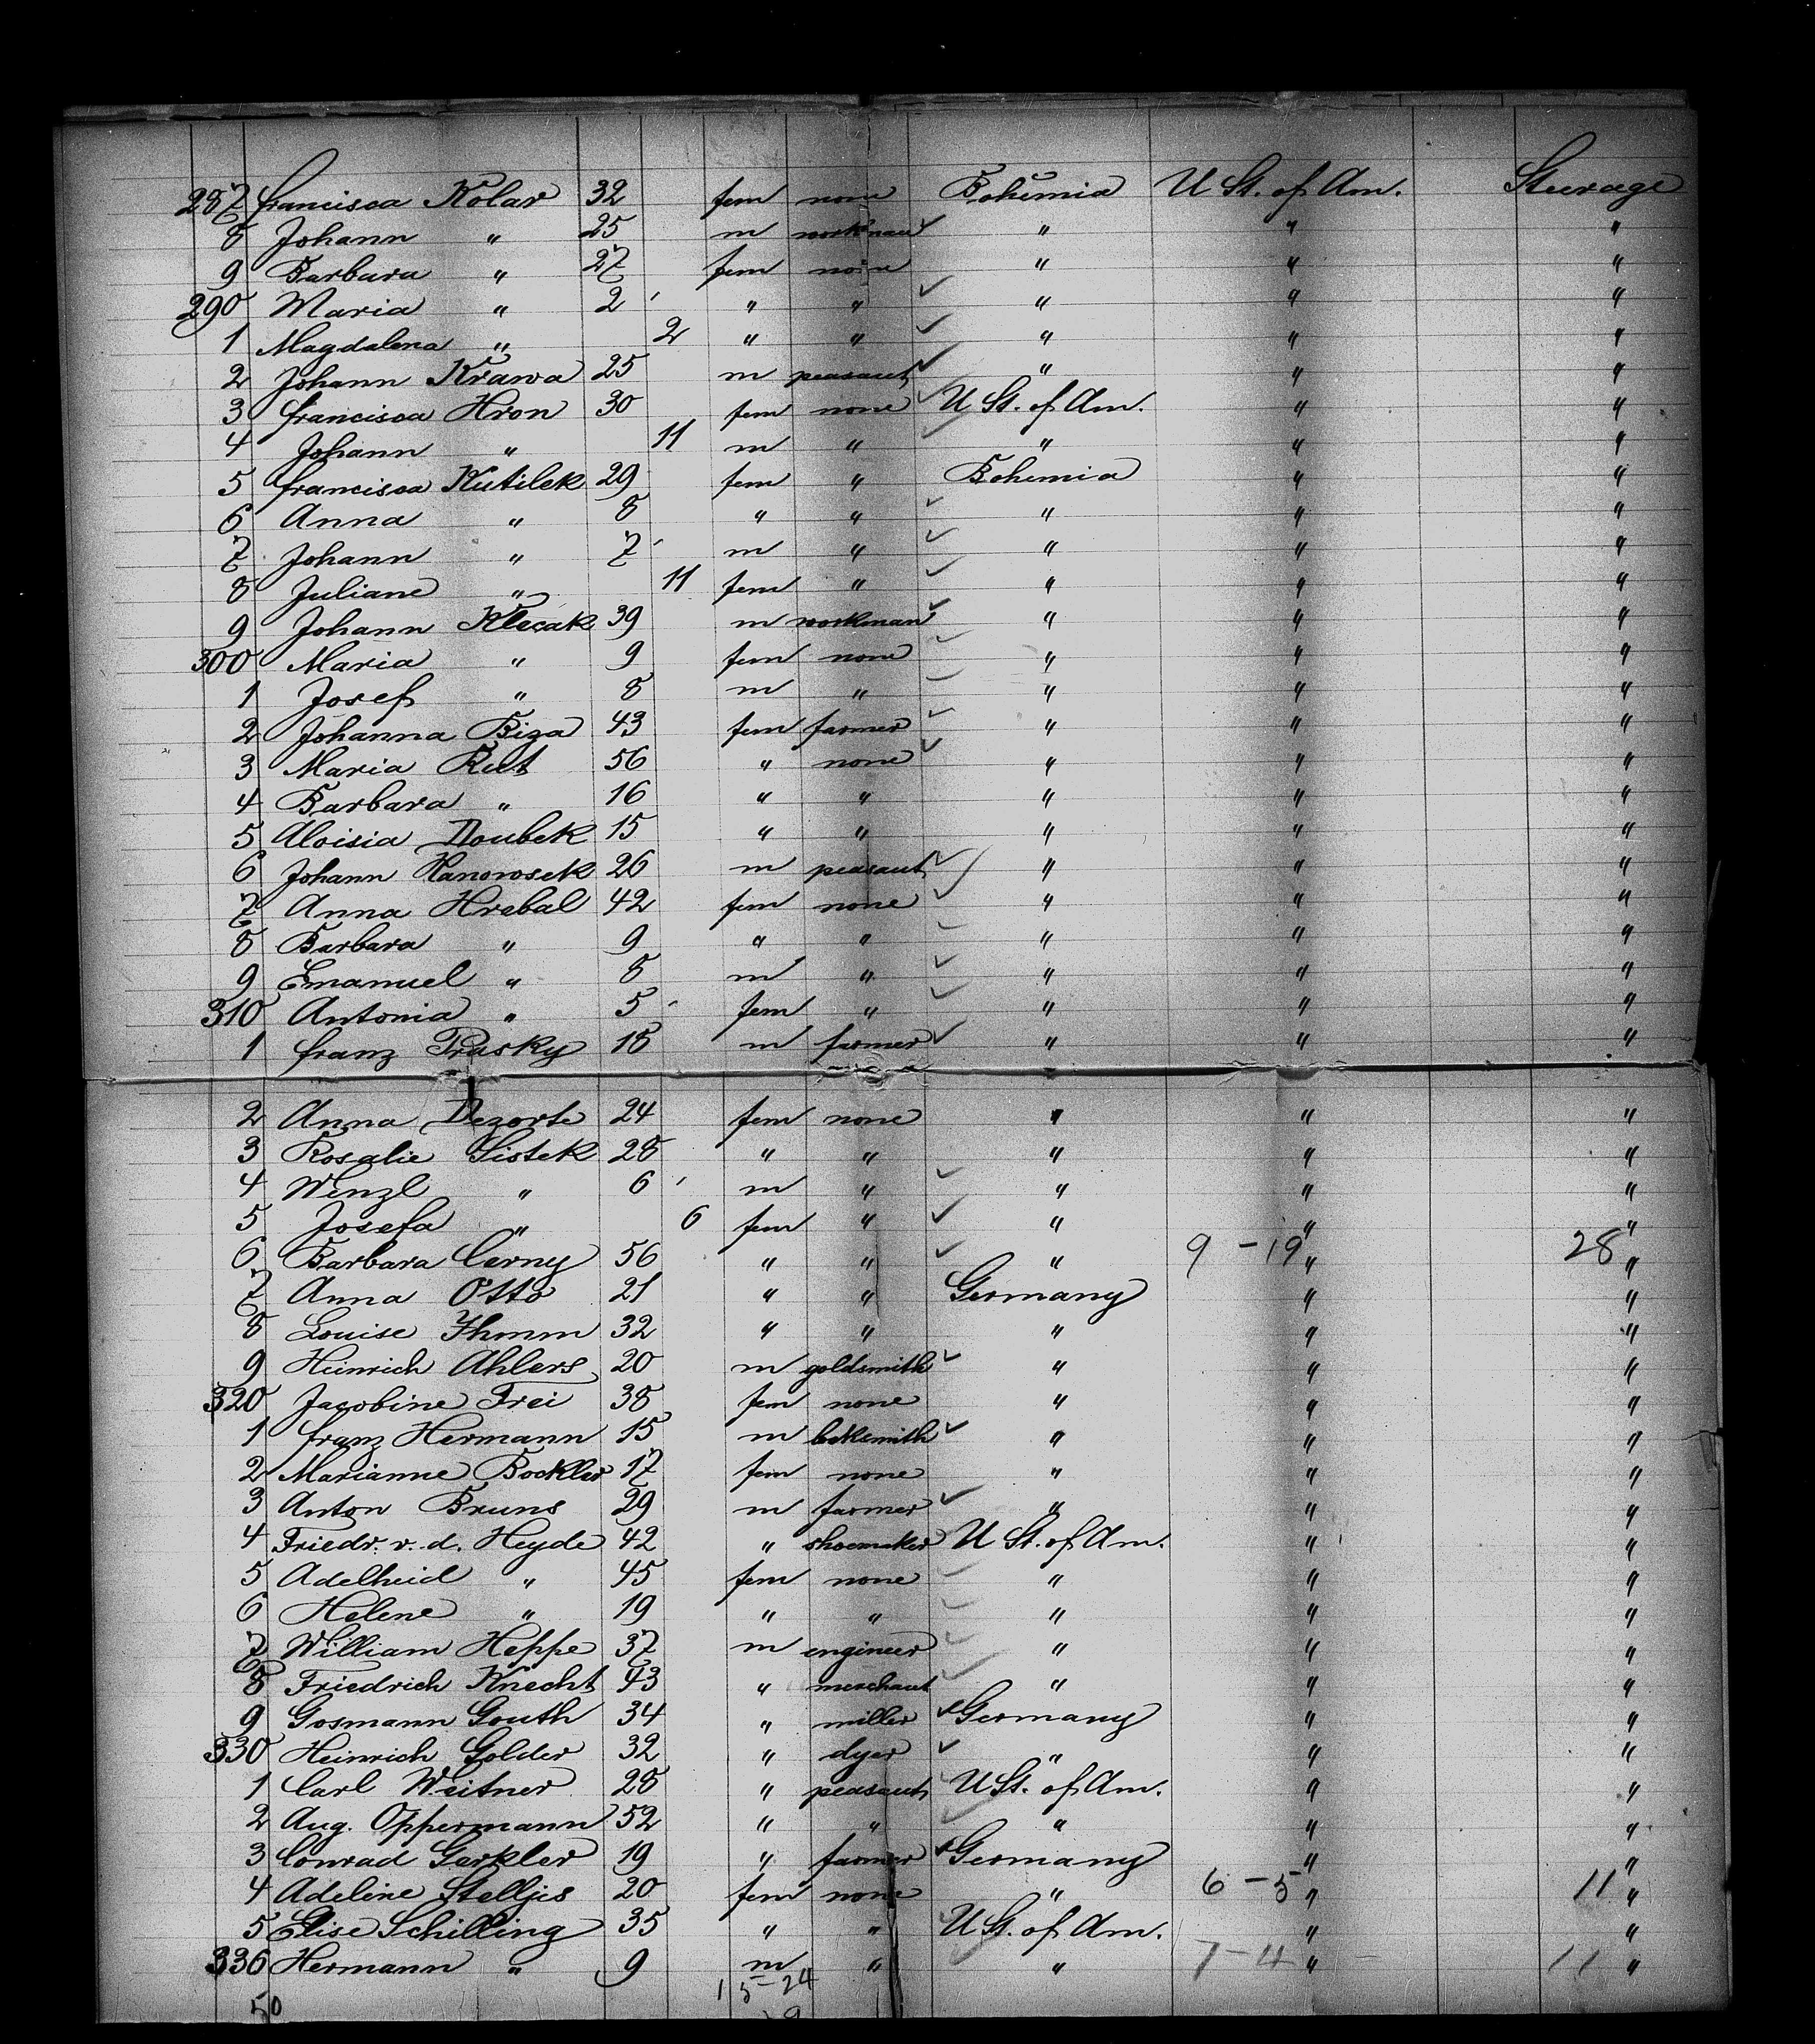 287 Francisca Kolar 32 fem none Bohemia U St. of Am. Steerage
8 Johann " 25 m workman " " "
9 Barbara " 27 fem none " " "
290 Maria " 2 " " " " "
1 Magdalena " 2 " " " " "
2 Johann Krawa 25 m peasant " " "
3 Francisca Hron 30 fem none U St. of Am. " "
4 Johann " 11 m " " " "
5 Francisca Kutilek 29 fem " Bohemia " "
6 Anna " 8 " " " " "
7 Johann " 7 m " " " "
8 Juliane " 11 fem " " " "
9 Johann Klecak 39 m workman " " "
300 Maria " 9 fem none " " "
1 Josef " 8 m " " " "
2 Johanna Biza 43 fem farmer " " "
3 Maria Rut 56 " none " " "
4 Barbara " 16 " " " " "
5 Aloisia Doubek 15 " " " " "
6 Johann Hanowsek 26 m peasant " " "
7 Anna Hrabal 42 fem none " " "
8 Barbara " 9 " " " " "
9 Emanuel " 8 m " " " "
310 Antonia " 5 fem " " " "
1 Franz Prasky 18 m farmer " " "
2 Anna Dezorte 24 fem none " " "
3 Rosalie Sistek 28 " " " " "
4 Wenzl " 6 m " " " "
5 Josefa " 6 fem " " " "
6 Barbara Cerny 56 " " " 9 - 19 " 28 "
7 Anna Otto 21 " " Germany " "
8 Louise Ihmm 32 " " " " "
9 Heinrich Ahlers 20 m goldsmith " " "
320 Jacobine Frei 38 fem none " " "
1 Franz Hermann 15 m locksmith " " "
2 Marianne Bockler 17 fem none " " "
3 Anton Bruns 29 m farmer " " "
4 Friedr. v. d. Heyde 42 " shoemaker U St. of Am. " "
5 Adelheid " 45 fem none " " "
6 Helene " 19 " " " " "
7 William Heppe 37 m engineer " " "
8 Friedrich Knecht 43 " merchant " " "
9 Gosmann Gouth 34 " miller Germany " "
330 Heinrich Golder 32 " dyer " " "
1 Carl Weitner 28 " peasant U St. of Am. " "
2 Aug. Oppermann 52 " " " " "
3 Conrad Garkler 19 " farmer Germany " "
4 Adeline Stelljes 20 fem none " 6 - 5 " 11 "
5 Elise Schilling 35 " " U St. of Am. " "
336 Hermann " 9 m " " 7 - 4 " 11 "
50 15-24